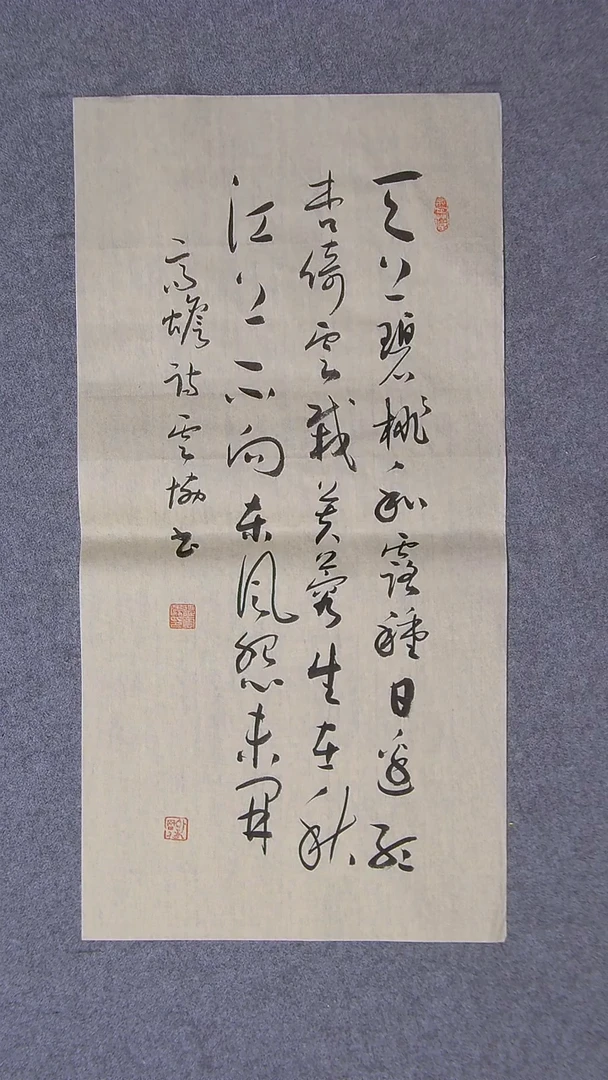 天上碧桃和露種日邊紅
杏倚雲栽芙蓉生在秋
江上不向東風怨未開
高蟾詩雲書